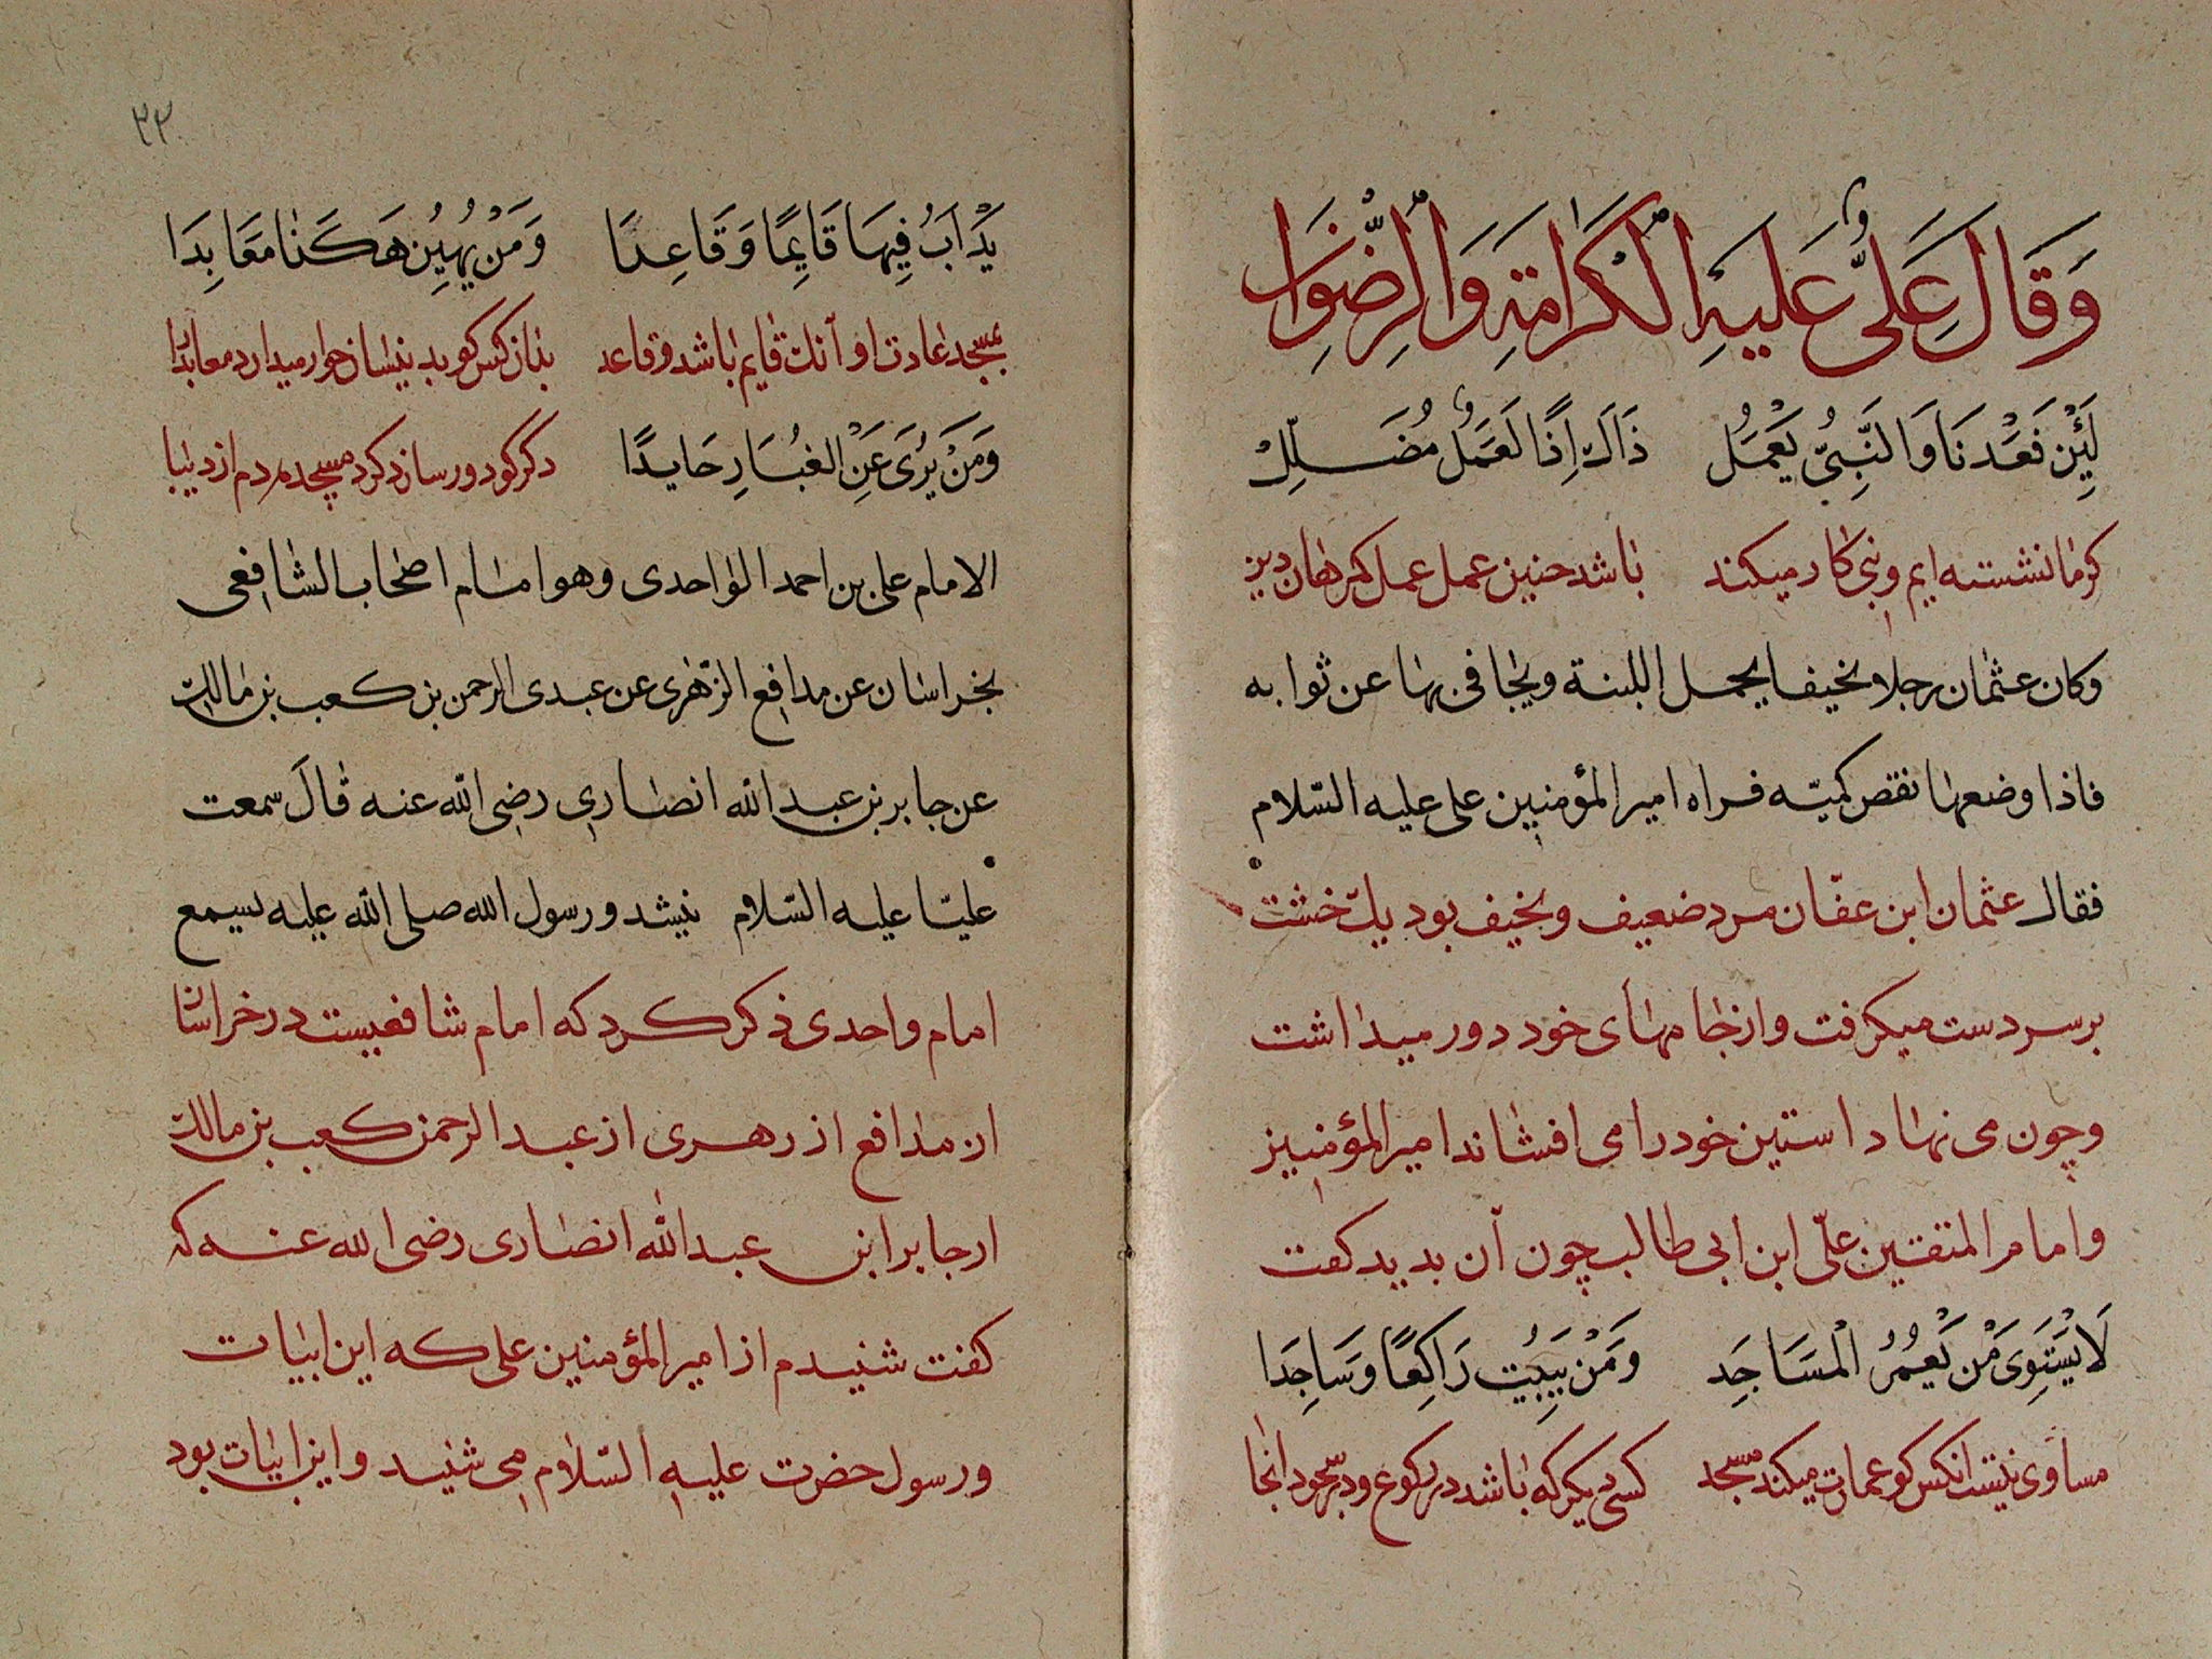 وَقَالَ عَلِىٌّ عَلَيْهِ الْكَرَامَةِ وَالرِّضْوَان
لَئِنْ قَعَدْنَا وَالنَّبِىُّ يَعْمَلُ ذَاكَ اِذًا لَعَمَلُ مُضَلِّلِ
كرما نشسته ايم و نبى كار ميكند باشد چنين عمل عمل كمرهان
وكان عثمان رجلا نحيفا يحمل اللبنة ويجافى بها عن ثوابه
فاذا وضعها نقص كميّه فراه امير المؤمنين على عليه السّلام
فقال عثمان ابن عفّان مرد ضعيف و نحيف بود يك خشت
بر سر دست ميكرفت و از جامهاى خود دور ميداشت
و چون مى نهاد استين خود را مى افشاند امير المؤمنين
و امام المتقين علىّ ابن ابى طالب چون آن بديد كفت
لَا يَسْتَوِى مَنْ يَعْمُرُ الْمَسَاجِدِ وَمَنْ يَبِيْتُ رَاكِعًا وَسَاجِدَا
مساوى نيست انكس كو عمارت ميكند مسجد كسى ديكر كه باشد در ركوع و در سجود انجا
٣٢
يَدْاَبُ فِيهَا قَايِمًا وَقَاعِدَا وَمَنْ يُهِيْنُ هَكَذَا مَعَابِدَا
بمسجد عادت او آنك قايم باشد و قاعد بدان كس كو بدينسان خوار ميدارد معابد را
وَمَنْ يُرَى عَنِ الغُبَارِ حَايِدًا دكر كو دور سازد كرد مسجد مردم از دنيا
الامام على بن احمد الواحدى وهو امام اصحاب الشافعى
بخراسان عن مدافع الزهرى عن عبدى الرحمن بن كعب بن مالك
عن جابر بن عبد الله انصارى رضى الله عنه قال سمعت
عليّا عليه السّلام ينشد و رسول الله صلى الله عليه يسمع
امام واحدى ذكر كرد كه امام شافعيست در خراسان
از مدافع از زهرى از عبد الرحمن كعب بن مالك
از جابر ابن عبد الله انصارى رضى الله عنه كه
كفت شنيدم از امير المؤمنين على كه اين ابيات
و رسول حضرت عليه السّلام مى شنيد و اين ابيات بود